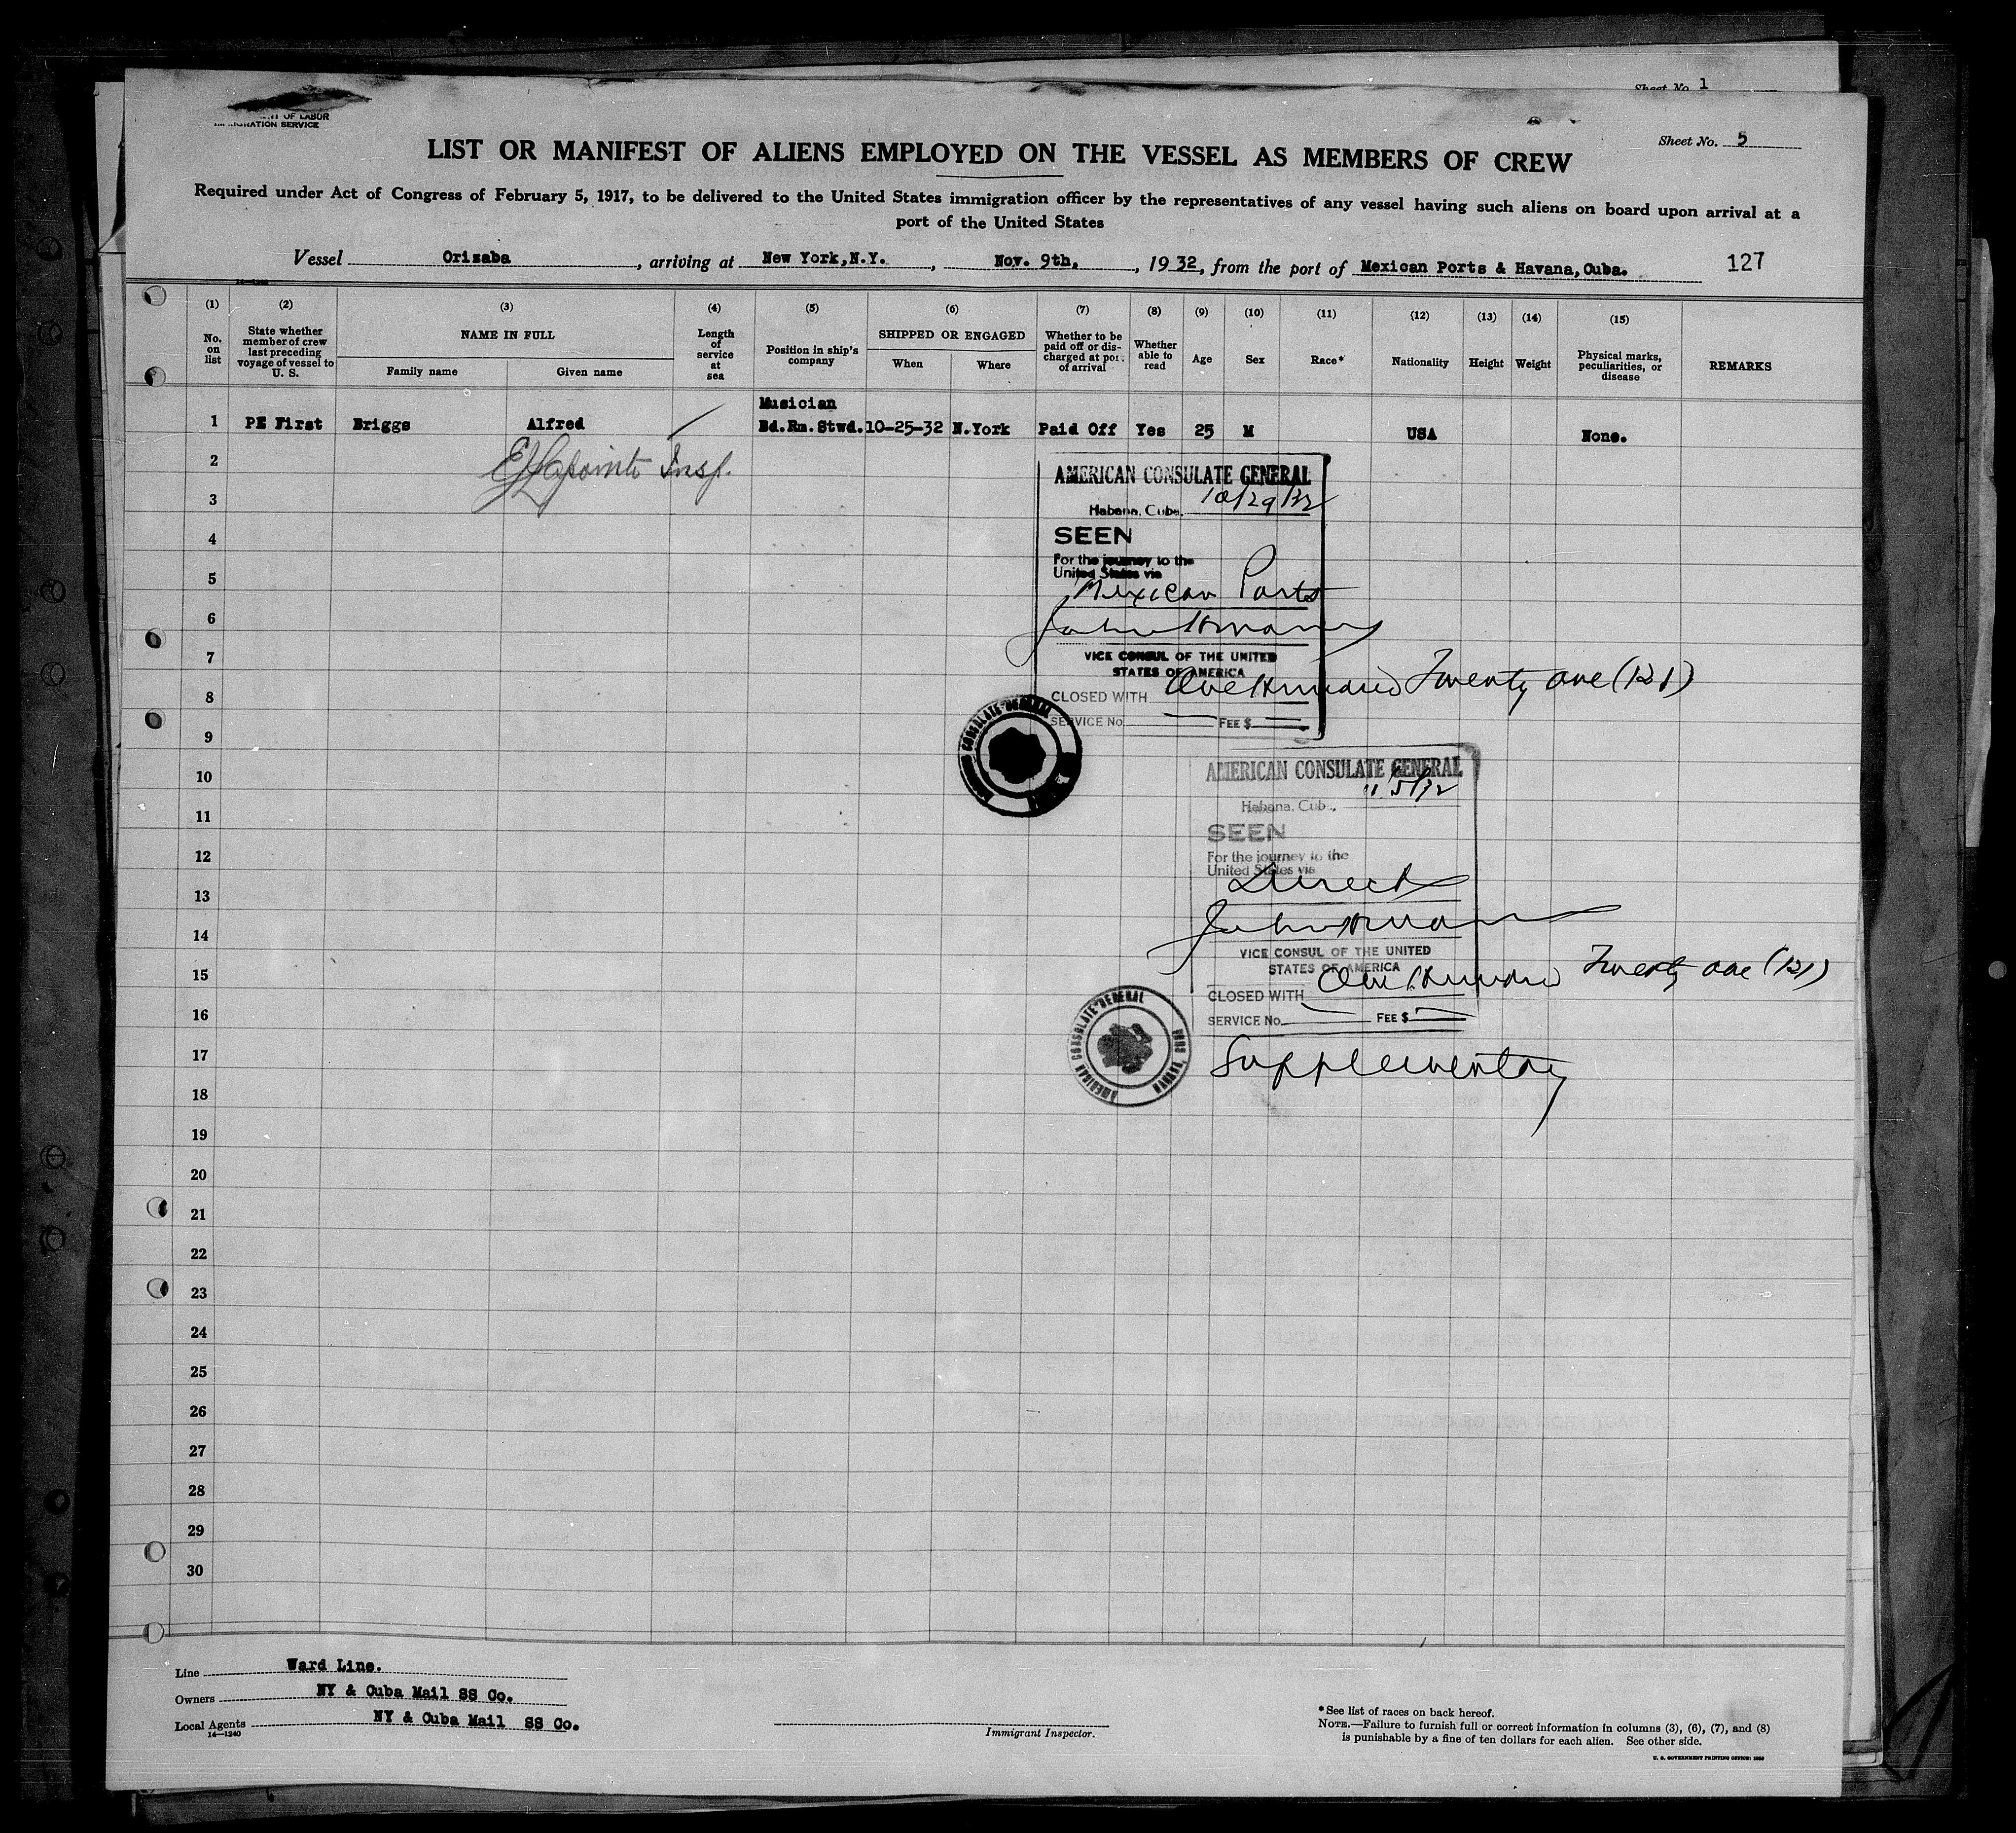 Sheet No. 1
OF LABOR
IMMIGRATION SERVICE
Sheet No. 5
LIST OR MANIFEST OF ALIENS EMPLOYED ON THE VESSEL AS MEMBERS OF CREW
Required under Act of Congress of February 5, 1917, to be delivered to the United States immigration officer by the representatives of any vessel having such aliens on board upon arrival at a
port of the United States
Vessel Orizaba, arriving at New York, N.Y., Nov. 9th, 1932, from the port of Mexican Ports & Havana, Cuba. 127
14-1240
(1) (2) (3) (4) (5) (6) (7) (8) (9) (10) (11) (12) (13) (14) (15)
No. on list
State whether member of crew last preceding voyage of vessel to U. S.
NAME IN FULL
Family name
Given name
Length of service at sea
Position in ship's company
SHIPPED OR ENGAGED
When
Where
Whether to be paid off or discharged at port of arrival
Whether able to read
Age
Sex
Race*
Nationality
Height
Weight
Physical marks, peculiarities, or disease
REMARKS
Musician
1 PE First Briggs Alfred Bd.Rm.Stwd. 10-25-32 N.York Paid Off Yes 25 M USA None.
2 Lapointe Insp.
3
4
5
6
7
8
9
10
11
12
13
14
15
16
17
18
19
20
21
22
23
24
25
26
27
28
29
30
AMERICAN CONSULATE GENERAL
Habana, Cuba, 10/29/32
SEEN
For the journey to the
United States via
Mexican Ports
VICE CONSUL OF THE UNITED
STATES OF AMERICA
CLOSED WITH One Hundred Twenty one (121)
SERVICE No. FEE $
CONSULATE GENERAL
AMERICAN CONSULATE GENERAL
Habana, Cuba, 11/5/32
SEEN
For the journey to the
United States via
Direct
VICE CONSUL OF THE UNITED
STATES OF AMERICA
CLOSED WITH One Hundred Twenty one (121)
SERVICE No. FEE $
AMERICAN CONSULATE GENERAL HAVANA, CUBA
Supplementary
Line Ward Line.
Owners NY & Cuba Mail SS Co.
Local Agents NY & Cuba Mail SS Co.
14-1240
Immigrant Inspector.
*See list of races on back hereof.
NOTE.—Failure to furnish full or correct information in columns (3), (6), (7), and (8)
is punishable by a fine of ten dollars for each alien. See other side.